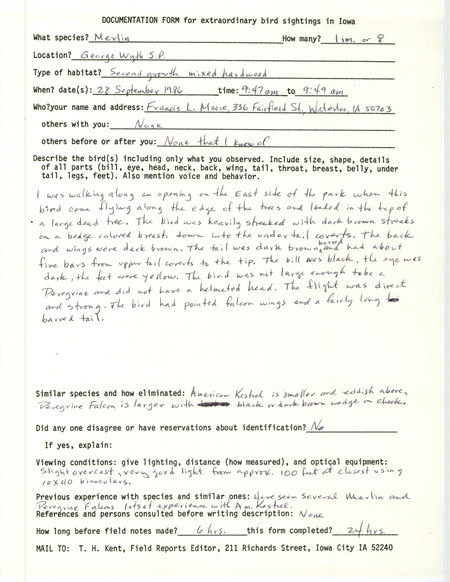 DOCUMENTATION FORM for extraordinary bird sightings in Iowa
What species? Merlin How many? 1 im. or ♀
Location? George Wyth S.P.
Type of habitat? Second growth mixed hardwood
When? date(s): 28 September 1986 time: 9:47 am to 9:49 am
Who? your name and address: Francis L. Moore, 336 Fairfield St, Waterloo, IA 50703
others with you: None
others before or after you: None that I know of
Describe the bird(s) including only what you observed. Include size, shape, details
of all parts (bill, eye, head, neck, back, wing, tail, throat, breast, belly, under
tail, legs, feet). Also mention voice and behavior.
I was walking along an opening on the East side of the park when this
bird came flying along the edge of the trees and landed in the top of
a large dead tree. The bird was heavily streaked with dark brown streaks
on a bedge colored breast down into the undertail coverts. The back
and wings were dark brown. The tail was dark brown, barred and had about
five bars from upper tail coverts to the tip. The bill was black, the eye was
dark, the feet were yellow. The bird was not large enough to be a
Peregrine and did not have a helmeted head. The flight was direct
and strong. The bird had pointed falcon wings and a fairly long
barred tail.
Similar species and how eliminated: American Kestrel is smaller and reddish above,
Peregrine Falcon is larger with black or dark brown wedge on cheek.
Did any one disagree or have reservations about identification? No
If yes, explain:
Viewing conditions: give lighting, distance (how measured), and optical equipment:
Slight overcast, very good light from approx. 100 feet at closest using
10x40 binoculars.
Previous experience with species and similar ones: Have seen several Merlin and
Peregrine Falcons lots of experience with Am. Kestrel.
References and persons consulted before writing description: None
How long before field notes made? 6 hrs. this form completed? 24 hrs.
MAIL TO: T. H. Kent, Field Reports Editor, 211 Richards Street, Iowa City IA 52240